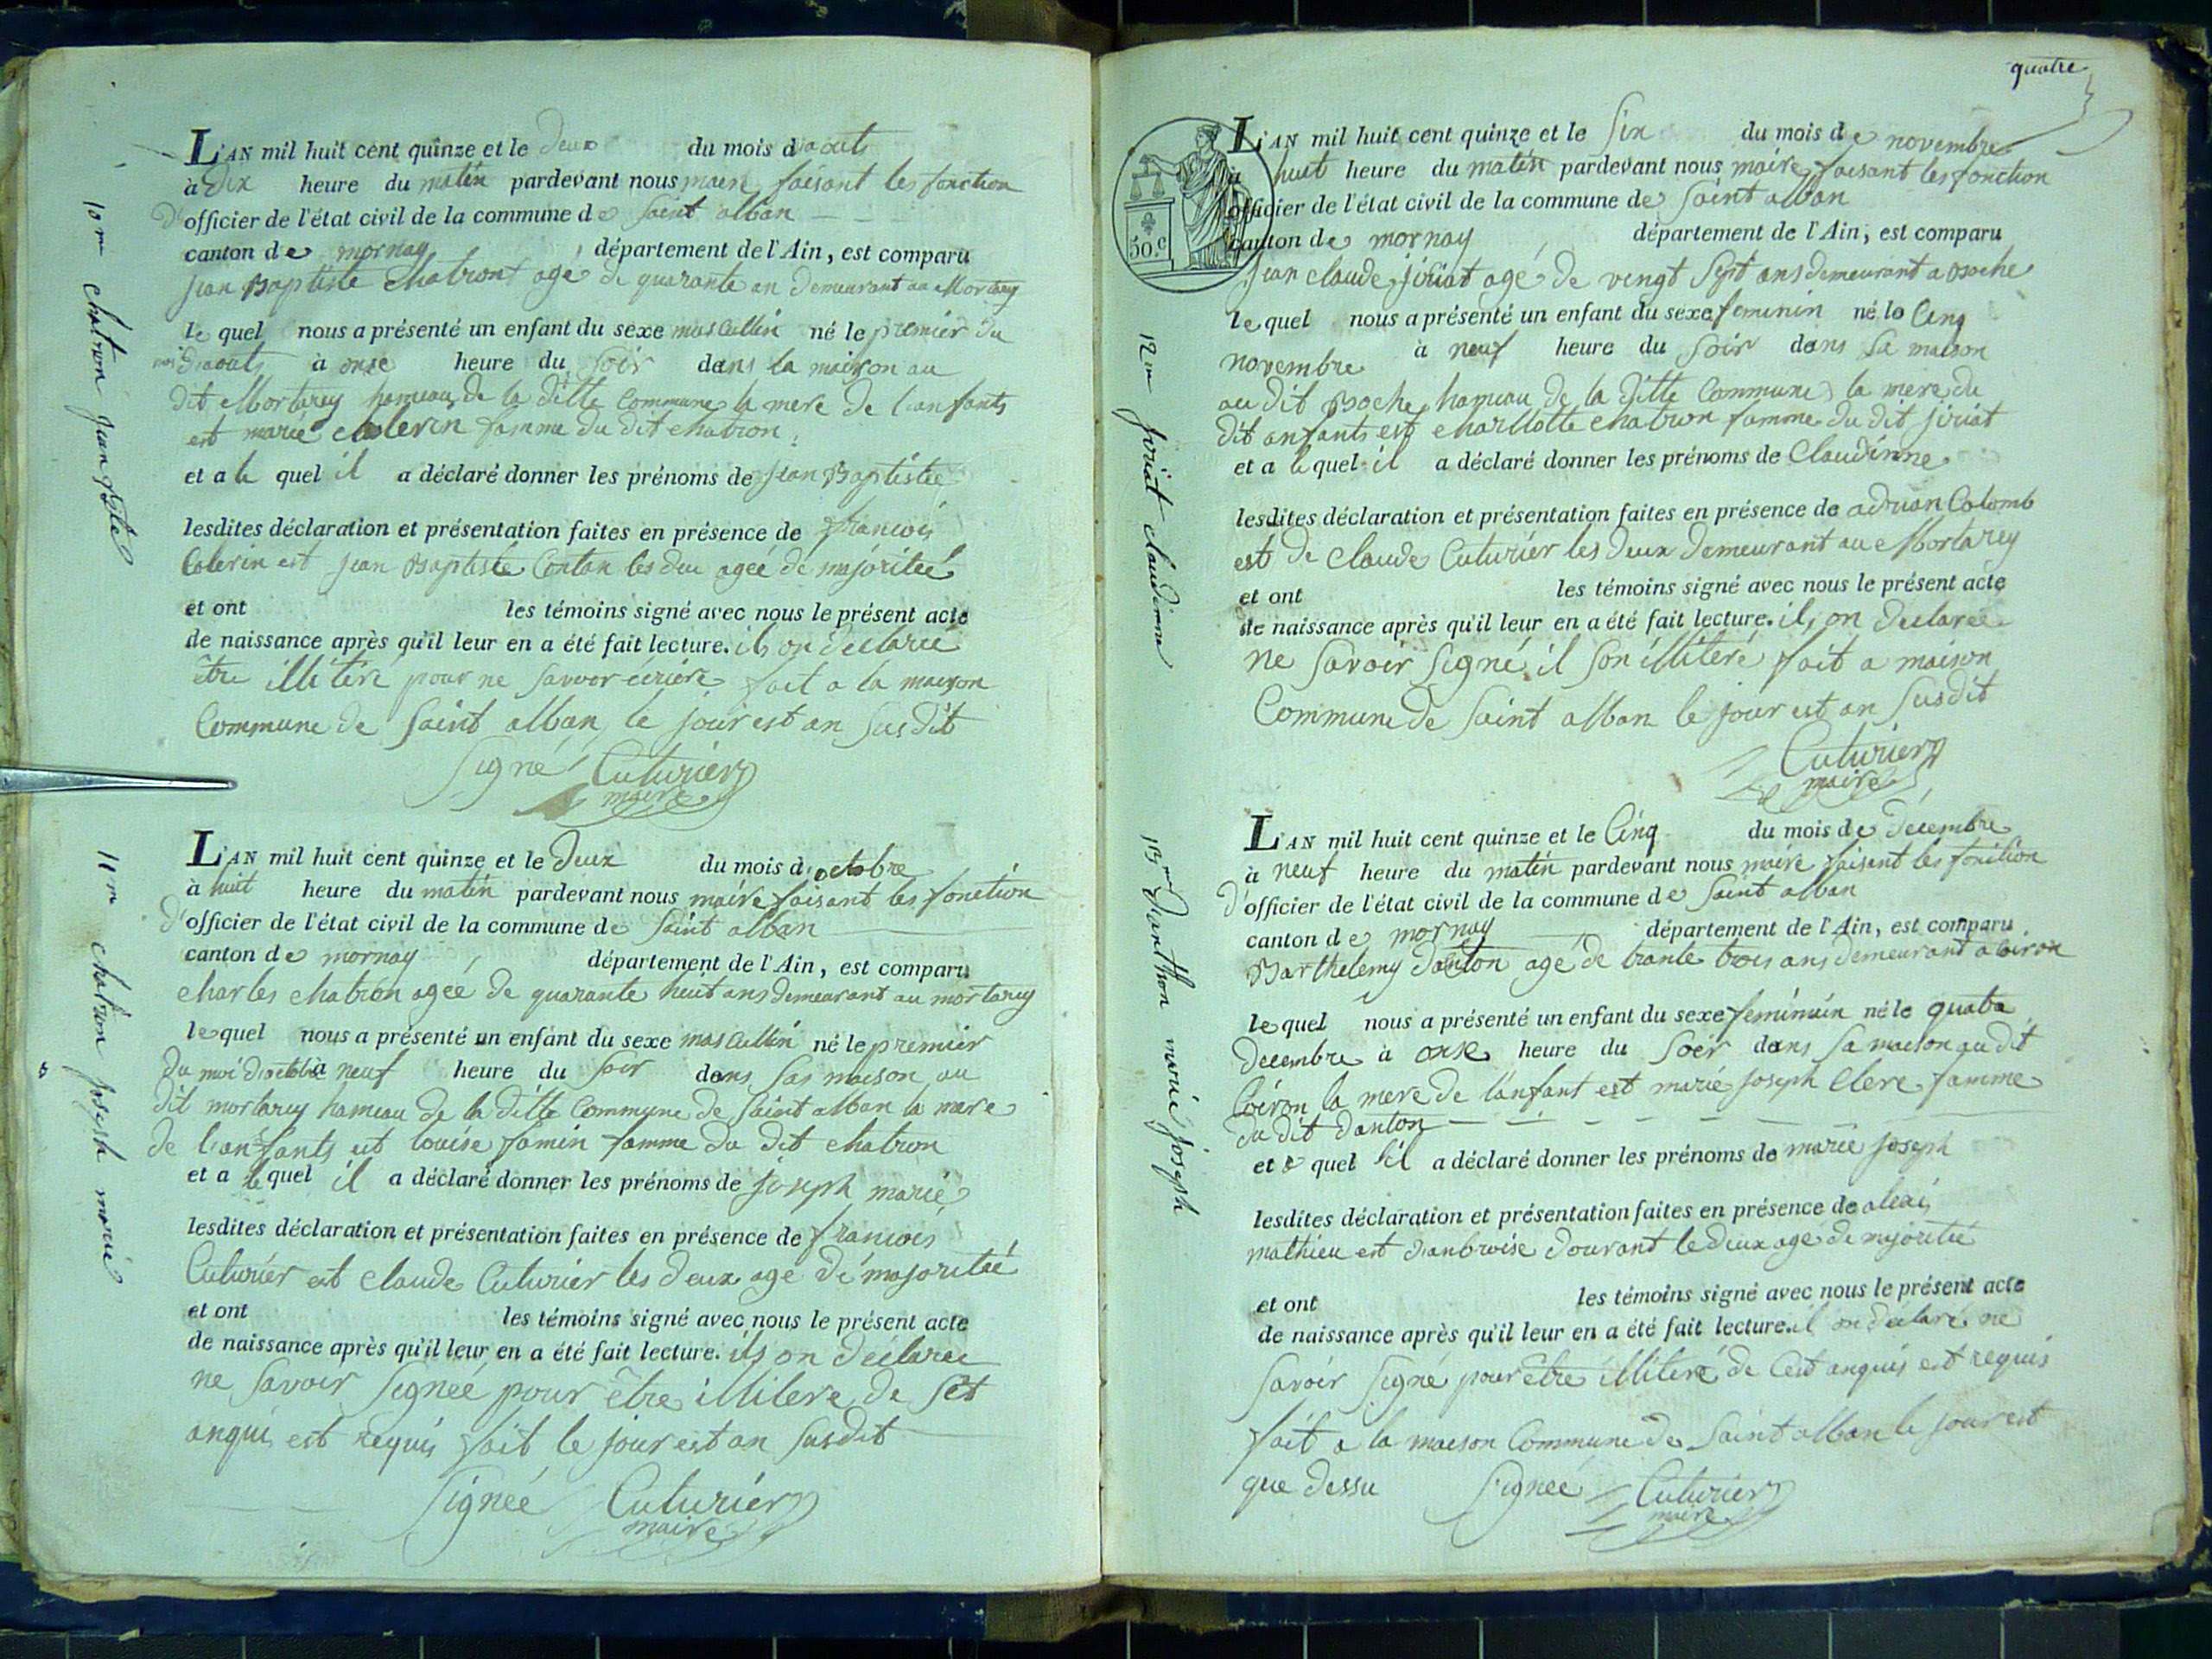 L'AN mil huit cent quinze et le deux du mois d'aout
à dix heure du matin pardevant nous maire faisant les fonction
d'officier de l'état civil de la commune de Saint alban
canton de mornay, département de l'Ain, est comparu
jean Baptiste Chatront agé de quarante an demeurant au Mortarey
le quel nous a présenté un enfant du sexe mascullin né le premier du
moi d'aout à onze heure du soir dans la maison au
dit Mortarey hameau de la ditte Commune la mere de l'anfants
est marie colerin famme du dit chatron.
et a le quel il a déclaré donner les prénoms de jean Baptistee
lesdites déclaration et présentation faites en présence de francois
Colerin est jean Baptiste Conton les deu ageé de majoriteé
et ont les témoins signé avec nous le présent acte
de naissance après qu'il leur en a été fait lecture. ils on declareé
être illitéré pour ne savoir écriére fait a la maison
Commune de Saint alban le jour est an susdit
Signé Cuturier
maire
10 me chatron jean bste
L'AN mil huit cent quinze et le deux du mois d'octobre
à huit heure du matin pardevant nous maire faisant les fonction
d'officier de l'état civil de la commune de Saint alban
canton de mornay, département de l'Ain, est comparu
charles chatron ageé de quarante huit ans demeurant au mortarey
le quel nous a présenté un enfant du sexe mascullin né le premier
du moi d'octobre à neuf heure du soir dans sas maison au
dit mortarey hameau de la ditte Commune de Saint alban la mere
de l'anfants est louise famin famme du dit chatron
et a le quel il a déclaré donner les prénoms de joseph marie
lesdites déclaration et présentation faites en présence de francois
Cuturier est claude Cuturier les deux age de majoriteé
et ont les témoins signé avec nous le présent acte
de naissance après qu'il leur en a été fait lecture. ils on déclareé
ne savoir signeé pour être illitere de set
anquis est requis fait le jour est an susdit
Signeé Cuturier
maire
11 me chatron joseph marie
quatre
50.c
L'AN mil huit cent quinze et le six du mois de novembre
à huit heure du matin pardevant nous maire faisant les fonction
officier de l'état civil de la commune de Saint alban
canton de mornay, département de l'Ain, est comparu
jean claude jiriat agé de vingt sept ans demeurant a Boche
le quel nous a présenté un enfant du sexe feminin né le Cinq
novembre à neuf heure du soir dans sa maison
au dit Boche hameau de la ditte Commune la mere du
dit anfants est charllotte chatron famme du dit jiriat
et a le quel il a déclaré donner les prénoms de Claudinne
lesdites déclaration et présentation faites en présence de adrian Colomb
est de claude Cuturier les deux demeurant au Mortarey
et ont les témoins signé avec nous le présent acte
de naissance après qu'il leur en a été fait lecture. ils on declareé
ne savoir signé il son illiteré fait a maison
Commune de Saint alban le jour est an susdit
Cuturier
maire
12 me jiriat claudinne
L'AN mil huit cent quinze et le Cinq du mois de décembre
à neuf heure du matin pardevant nous maire faisant les fonction
d'officier de l'état civil de la commune de Saint alban
canton de mornay, département de l'Ain, est comparu
Barthelemy danton agé de trante trois ans demeurant a Coiron
le quel nous a présenté un enfant du sexe feminin né le quatre
decembre à onse heure du soer dans sa maeson au dit
Coiron la mere de l'anfant est marie joseph clere famme
du dit danton
et a quel il a déclaré donner les prénoms de marie joseph
lesdites déclaration et présentation faites en présence de
mathieu est d'anbroise dourant le deux agé de majoriteé
et ont les témoins signé avec nous le présent acte
de naissance après qu'il leur en a été fait lecture. il on déclaré ne
savoir signé pour être illiteré de Cest anquis est requis
fait a la maeson Commune de Saint alban le jour est
que dessu Signeé Cuturier
maire
13 me danthon marie joseph